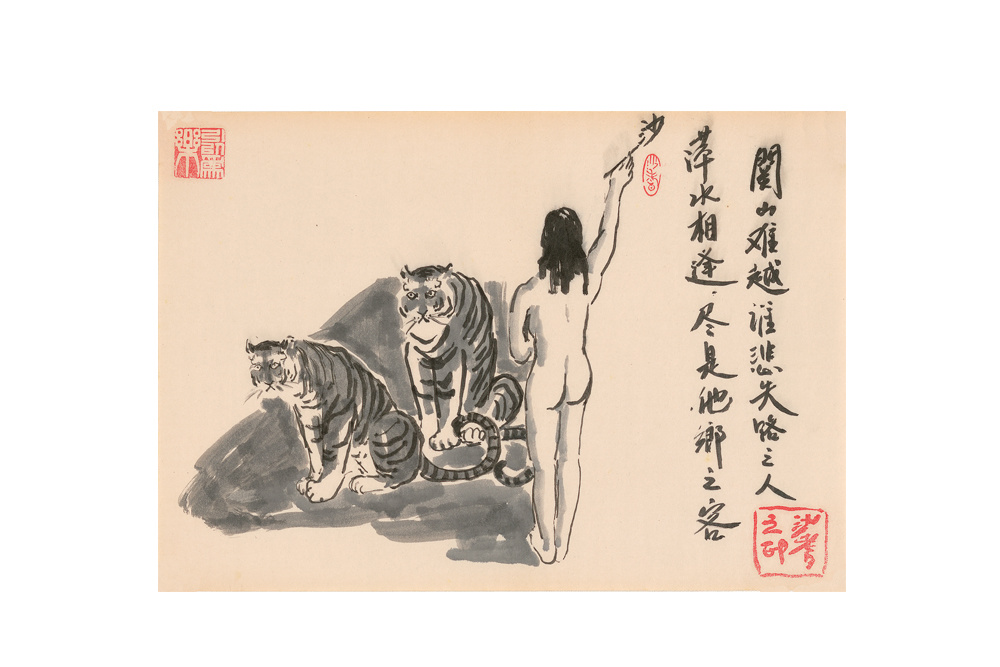 關山难越誰悲失路之人
萍水相逢.尽是他鄉之客
沙
沙耆
沙耆之印